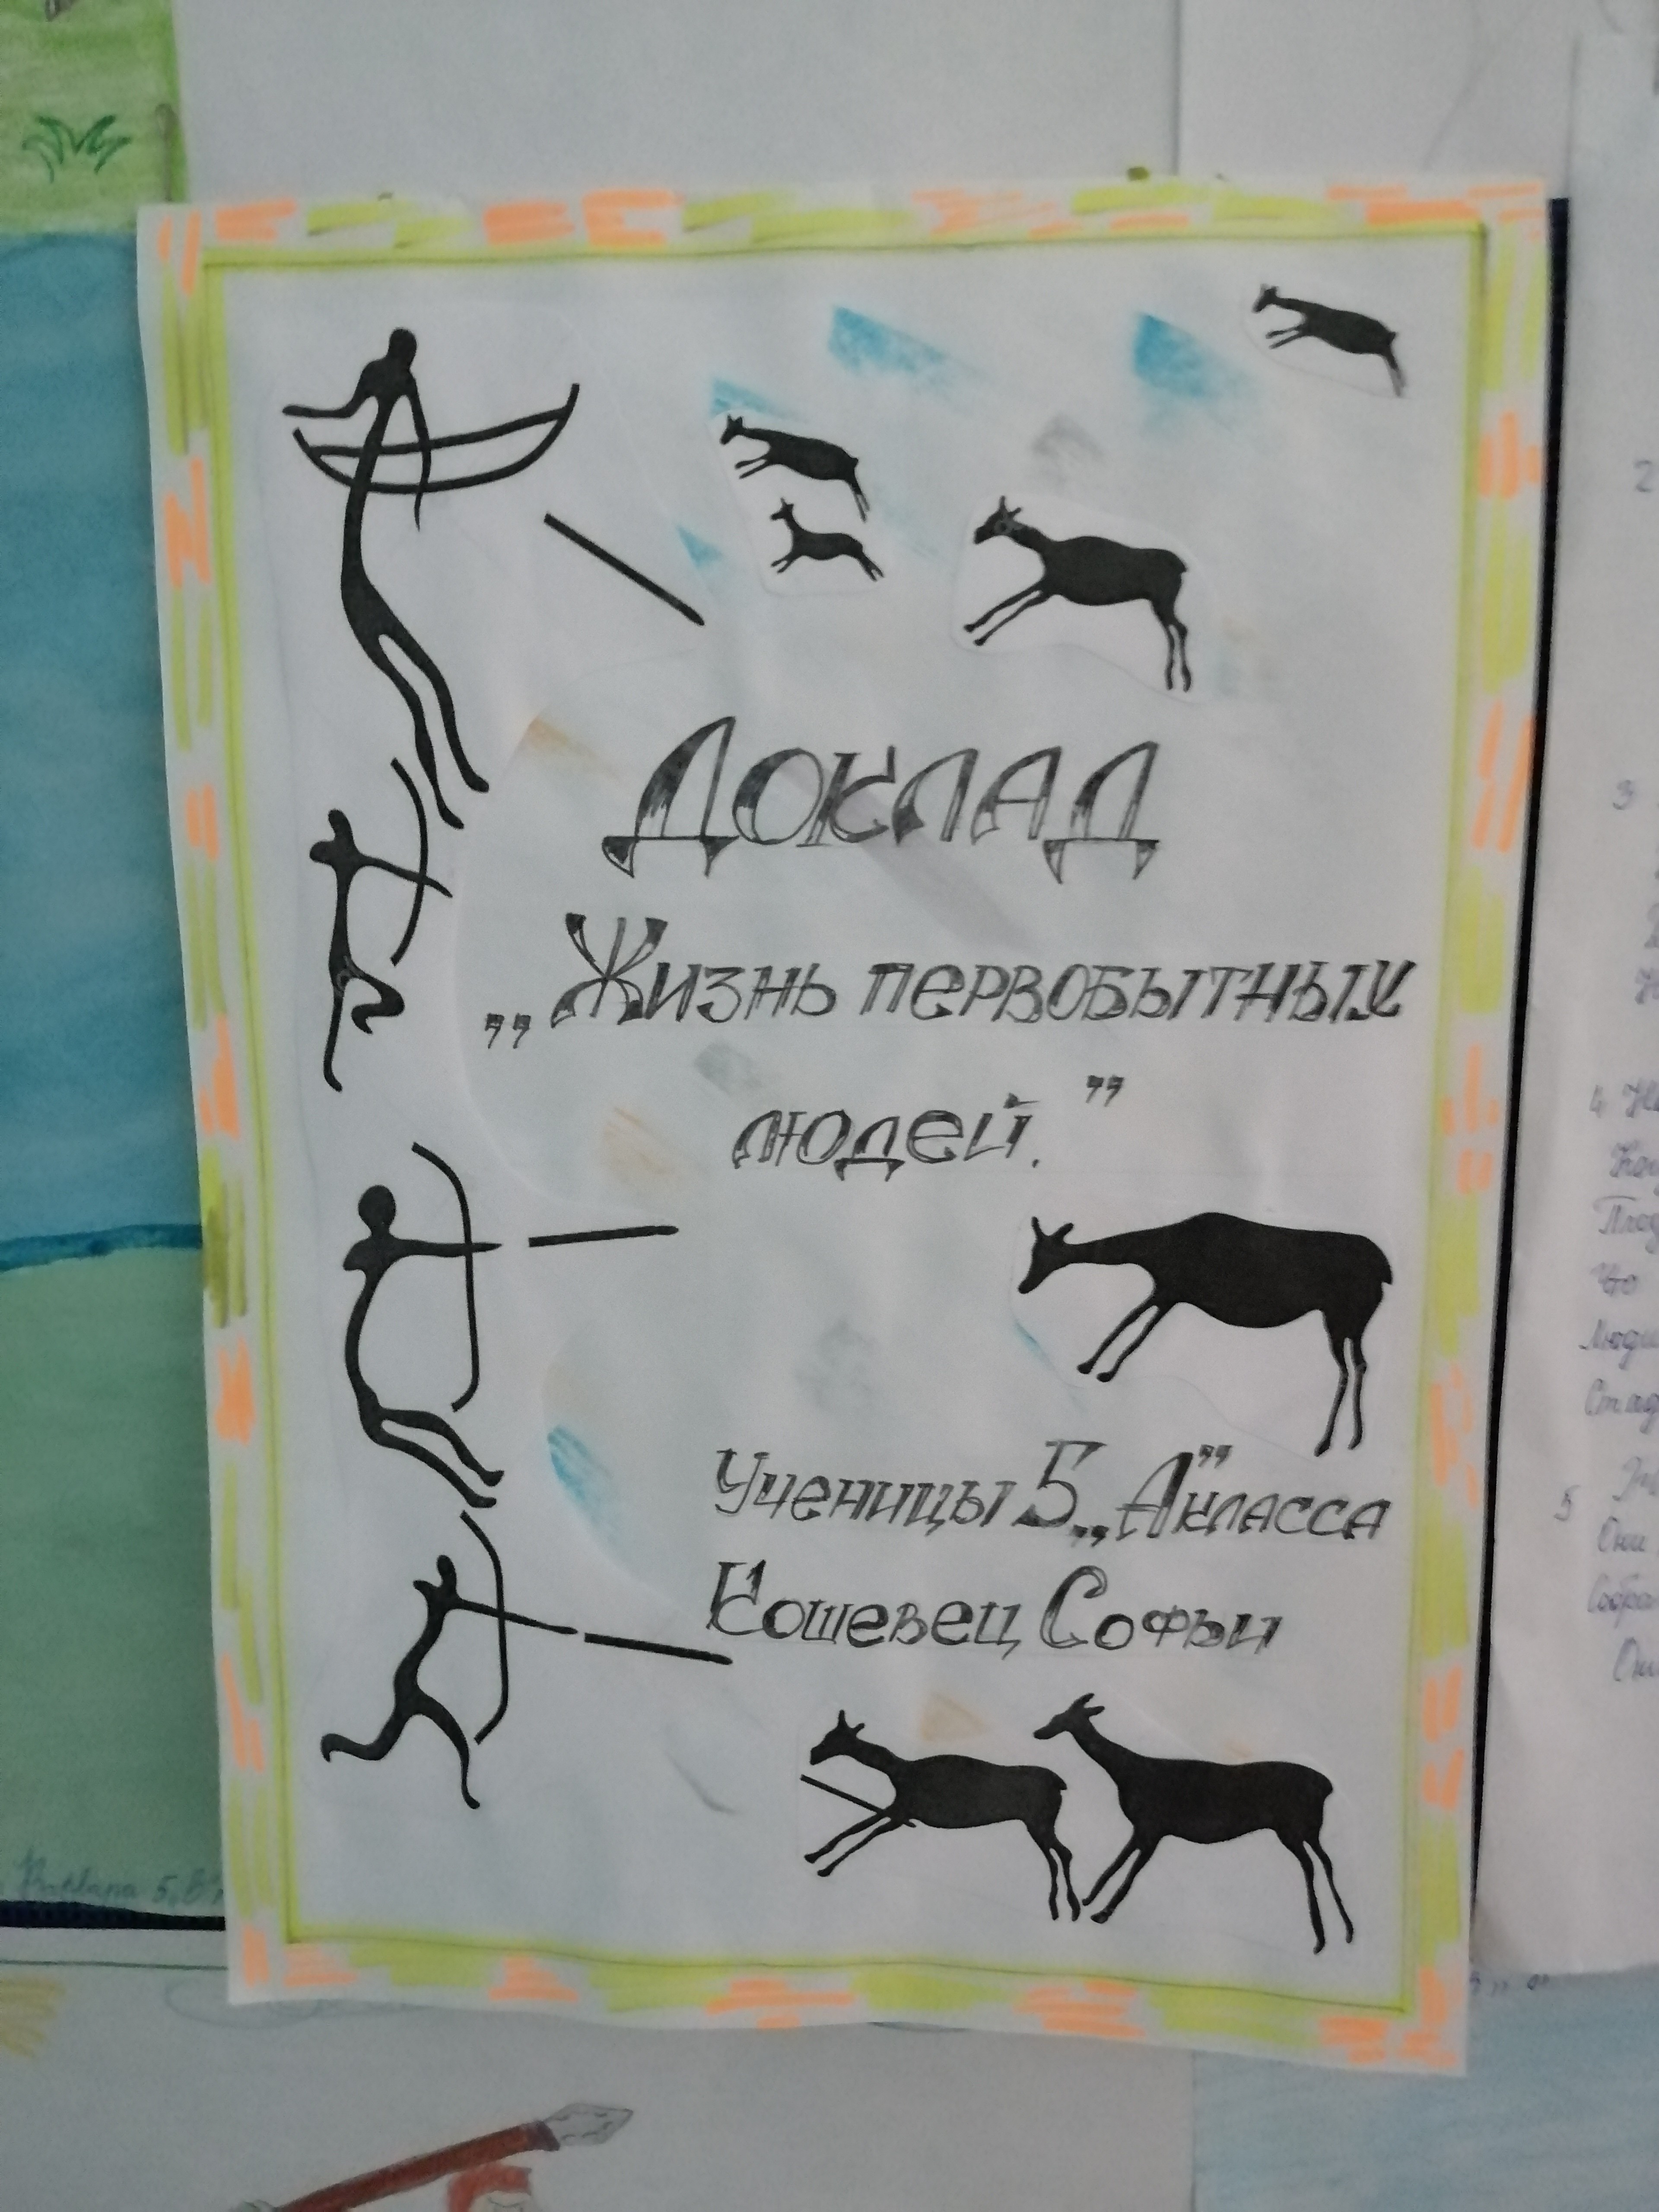 Доклад
„Жизнь первобытных
людей.”
Ученицы 5 „А” класса
Кошевец Софьи
5„В”
2
3
4
5
Они